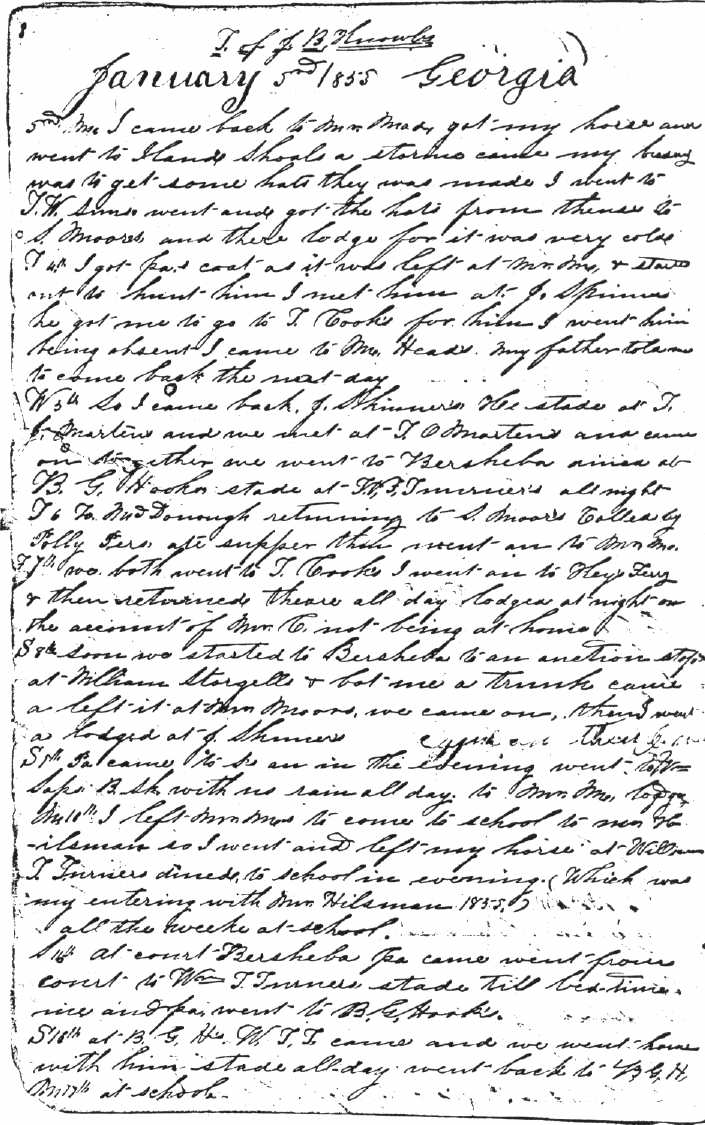 8
T. of J. B. Knowles
January 3rd 1855 Georgia
3rd M. I came back to Mrs. Meads got my horse and
went to Iland Shoals a storme came my
was to get some hats they was made I went to
T. W. Sims went and got the hats from thense to
S. Moores and there lodge for it was very cold
T 4th I got pa.s coat as it was left at Mr. Ms, & started
out to hunt him I met him at J. Skinners
he got me to go to T. Cooks for him I went him
being absent I came to Mr. Heads. my father told me
to come back the next day
W 5th So I came back. J. Skinners He stade at T.
J. Martins and we met at T. O Martens and came
on together we went to Bersheba dined at
B. G. Hooks stade at T. Turner's all night
T 6 To MacDonough returning to S. Moors Called by
Polly Pers. ate supper then went on to Mrs Mo.
F 7th we both went to T. Cooks I went on to Keys Ferry
& then returned theare all day lodged at night on
the account of Mr. C. not being at home
S 8th soon we started to Bersheba to an auction stopt
at William Storgells & bot me a trunk came
a left it at Mrs Moors, we came on, then I went
a lodged at J. Skiners
S 9th Pa came to S. an in the evening went to
Saps B. Sk. with us rain all day. to Mrs. Mo, lodge,
M 10th I left Mrs. Mos to come to school to mr. H
-ilsman so I went and left my horse at William
T. Turners dined, to school in evening. (Which was
my entering with Mr. Hilsman 1855.)
all the weeke at school.
S at court Bersheba pa came went from
court to Wm T. Turners stade till bed-time.
me and pa. went to B. G. Hook's.
S 16th at B. G. Hs. W. T. T. came and we went home
with him stade all day went back to B G. H,
M 17th at school.